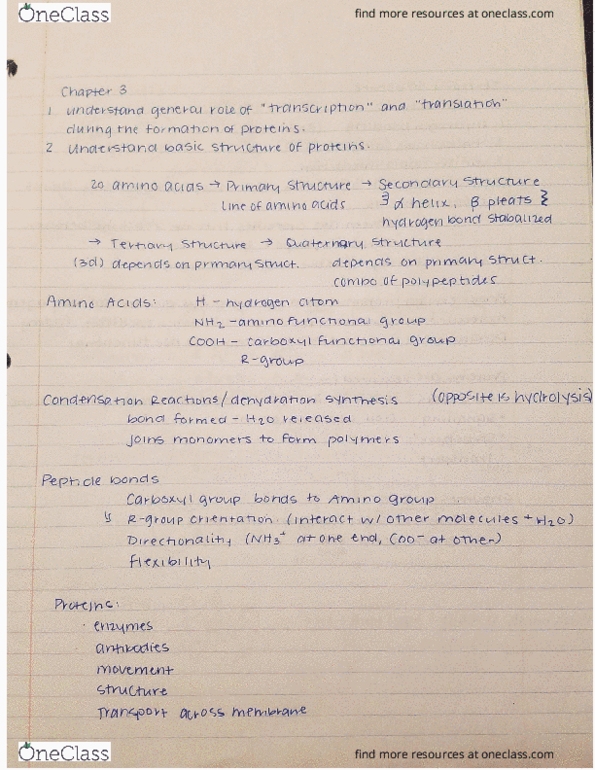 OneClass
find more resources at oneclass.com
Chapter 3
1 understand general role of "transcription" and "translation"
during the formation of proteins.
2 Understand basic structure of proteins.
20 amino acids → Primary Structure → Secondary Structure
line of amino acids ∃ α helix, β pleats }
hydrogen bond stabalized
→ Tertiary Structure → Quaternary Structure
(3d) depends on primary struct. depends on primary struct.
combo of polypeptides
Amino Acids: H - hydrogen atom
NH2 - amino functional group
COOH - carboxyl functional group
R-group
Condensation Reactions/dehydration synthesis (opposite is hydrolysis)
bond formed - H2O released
joins monomers to form polymers
Peptide bonds
Carboxyl group bonds to Amino group
↳ R-group orientation (interact w/ other molecules + H2O)
Directionality (NH3+ at one end, COO- at other)
flexibility
Proteins:
· enzymes
antibodies
movement
structure
Transport across membrane
OneClass
find more resources at oneclass.com